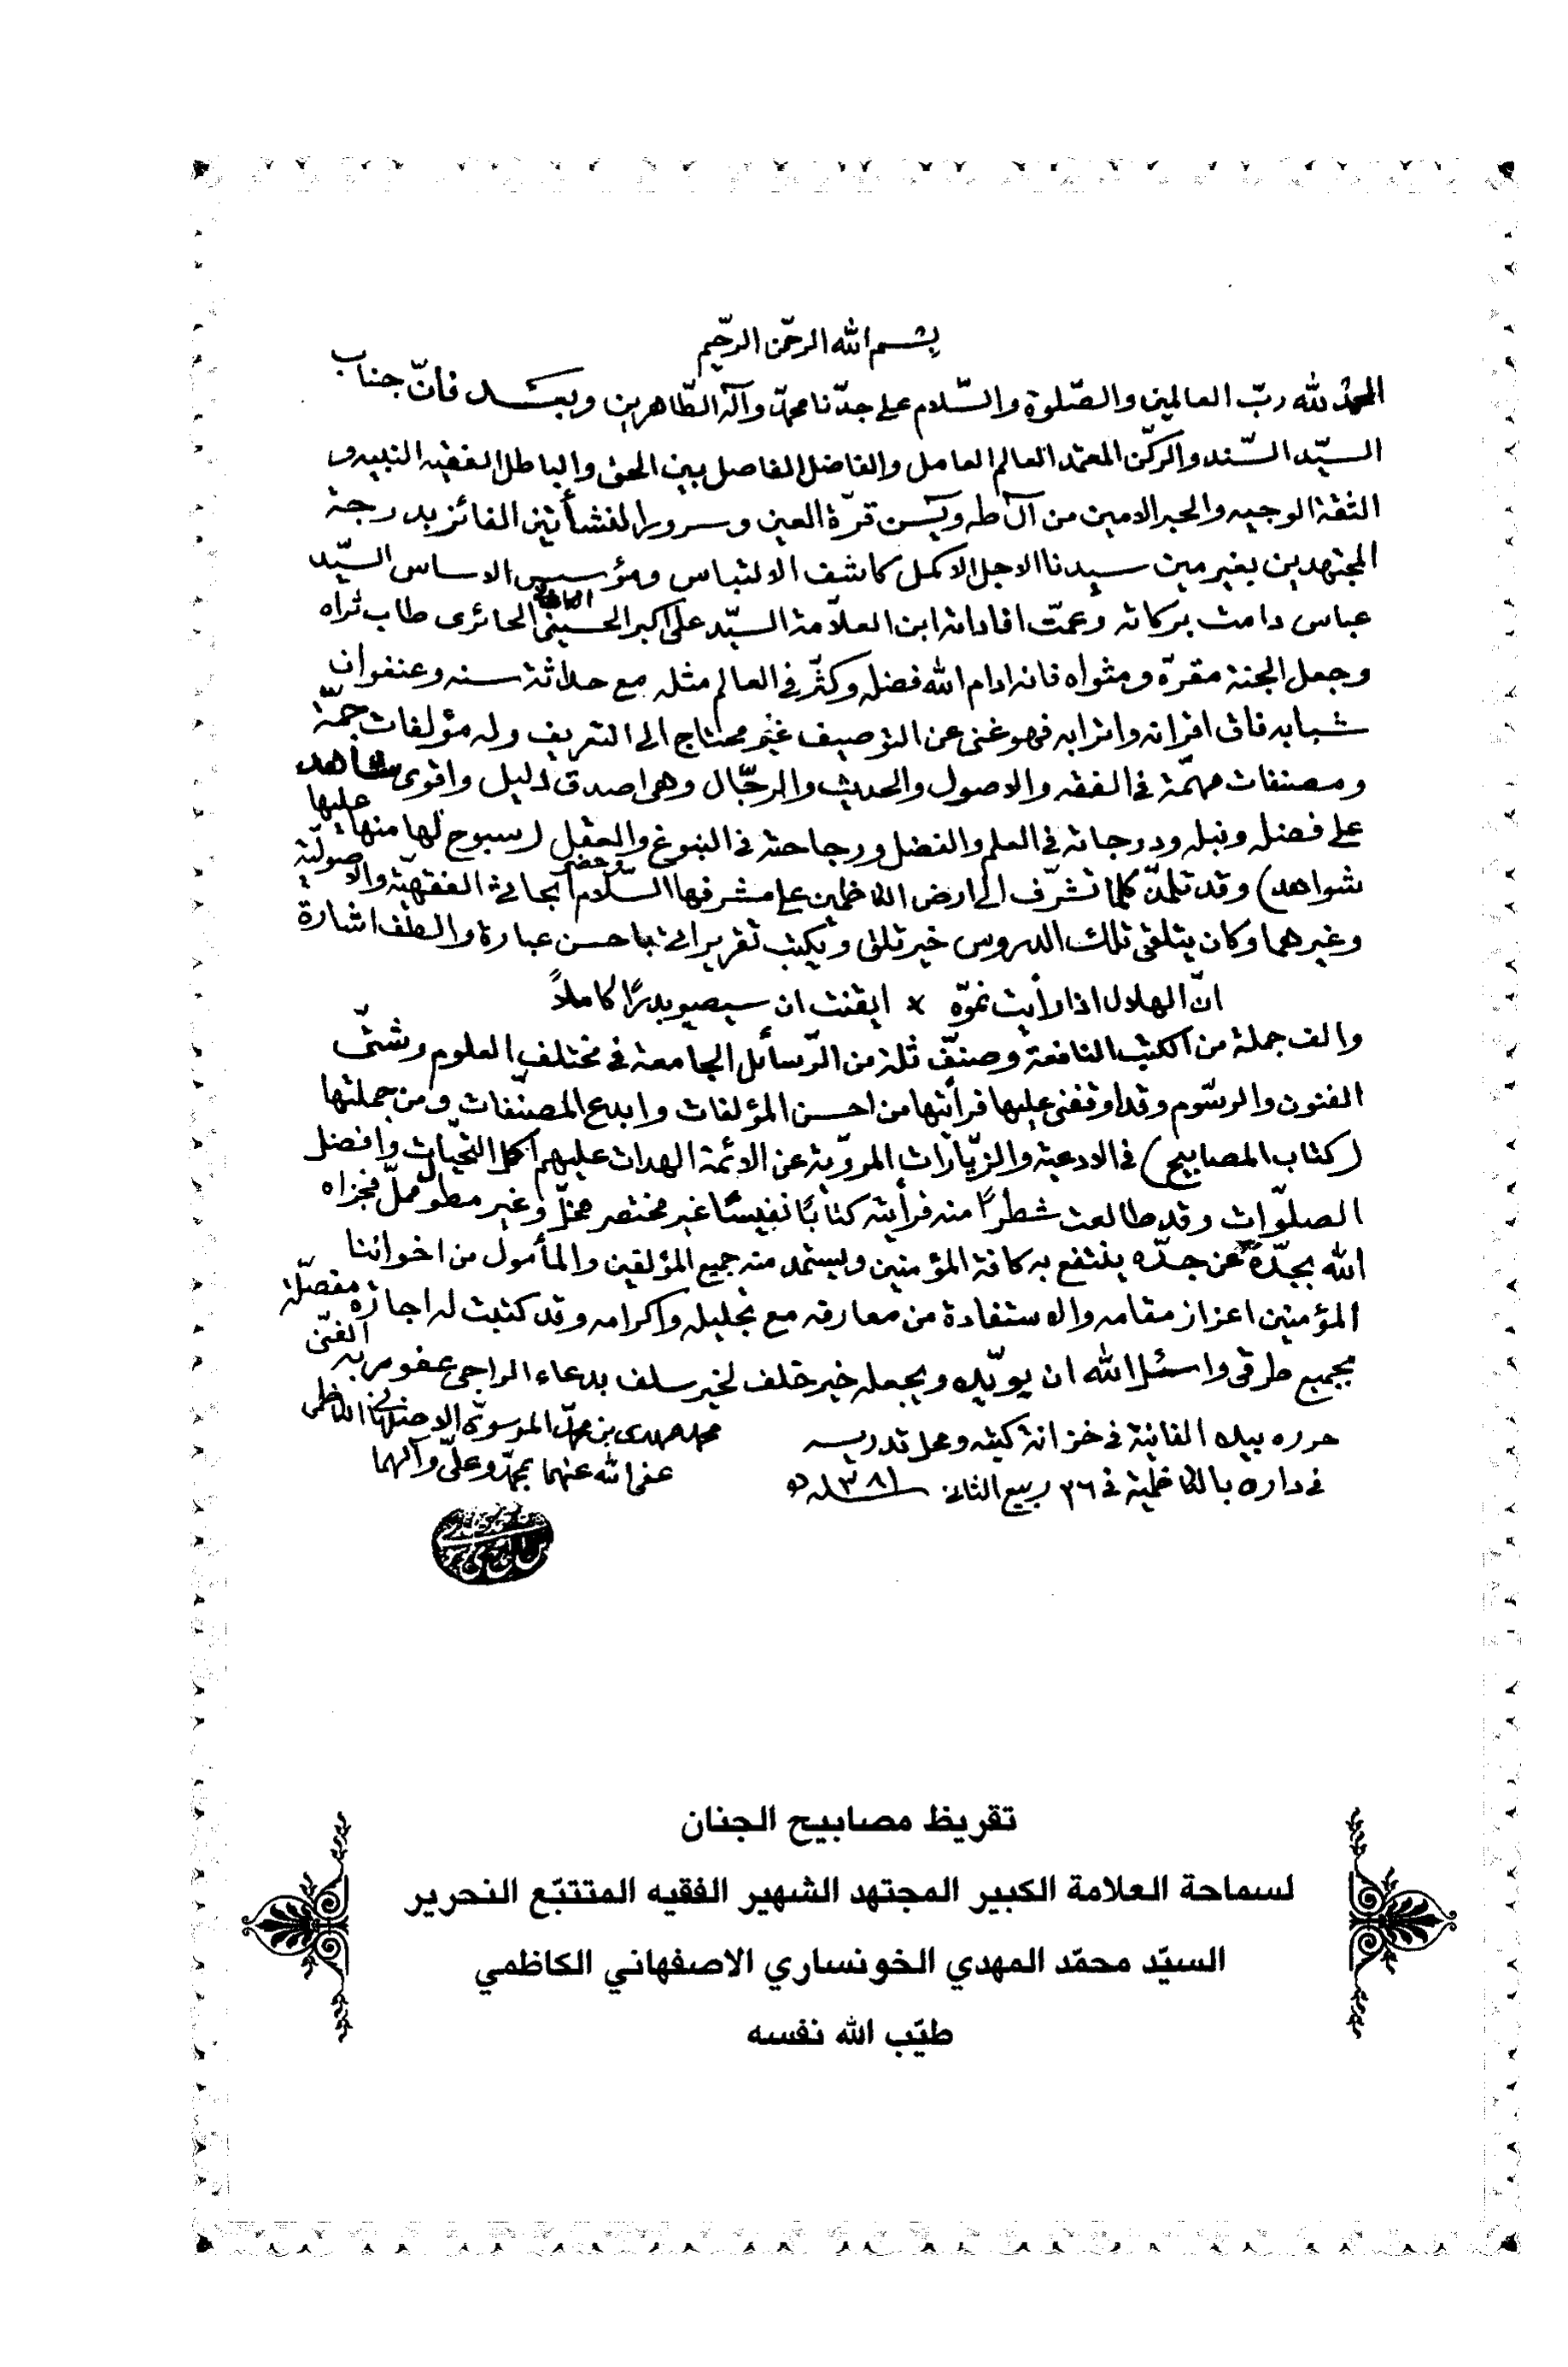 بسم الله الرحمن الرحيم
الحمد لله ربّ العالمين والصّلوة والسّلام على جدّنا محمّد وآله الطّاهرين وبعد فانّ جناب
السيّد السّند والركن المعتمد العالم العامل والفاضل الفاصل بين الحق والباطل الفقيه النبيه و
الثقة الوجيه والحبر الامين من آل طه ويٓسن قرّة العين وسرور النشأتين الفائز بدرجة
المجتهدين بغير مين سيدنا الاجل الاكمل كاشف الالتباس ومؤسس الاساس السيّد
عباس دامت بركاته وعمّت افاداته ابن العلاّمة السيّد على اكبر الحسيني الحائرى طاب ثراه
وجعل الجنة مقرّه ومثواه فانه ادام الله فضله وكثّر في العالم مثله مع حداثة سنه وعنفوان
شبابه فاق اقرانه واترابه فهو غنى عن التوصيف غير محتاج الى التعريف وله مؤلفات جمّة
ومصنفات مهمّة في الفقه والاصول والحديث والرجّال وهى اصدق دليل واقوى شاهد
على فضله ونبله ودرجاته في العلم والفضل ورجاحته في النبوغ والعقل (سبوح لها منها عليها
شواهد) وقد تلمّذ كلما تشرّف الى ارض الكاظمين على مشرفها السّلام وحضر ابحاثي الفقهيّة والاصوليّة
وغيرهما وكان يتلقى تلك الدروس خير تلق ويكتب تقريراتي باحسن عبارة والطف اشارة
انّ الهلال اذا رأيت نموّه × ايقنت ان سيصير بدرًا كاملاً
والف جملة من الكتب النافعة وصنّف ثلة من الرّسائل الجامعة في مختلف العلوم وشتّى
الفنون والرسّوم وقد اوقفنى عليها فرأيتها من احسن المؤلفات وابدع المصنّفات ومن جملتها
(كتاب المصابيح) في الادعية والزّيارات المرويّة عن الائمة الهدات عليهم اكمل التحيّات وافضل
الصلوّات وقد طالعت شطرًا منه فرأيته كتابًا نفيسًا غير مختصر مخلّ وغير مطوّل مملّ فجزاه
الله بجدّه عن جدّه ينتفع به كافة المؤمنين ويستمد منه جميع المؤلفين والمأمول من اخواننا
المؤمنين اعزاز مقامه والاستفادة من معارفه مع تجليله واكرامه وقد كتبت له اجازة مفصّلة
بجميع طرقى واسئل الله ان يويّده ويجعله خير خلف لخير سلف بدعاء الراجى عفو ربه الغنىّ
محمد مهدى بن محمّد الموسوىّ الاصفهانى الكاظمى
عفى الله عنهما بمحمّد وعلىّ وآلهما
حرره بيده الفانية في خزانة كتبه ومحل تدريسه
في داره بالكاظمية في ٢٦ ربيع الثاني ١٣٨١
تقريظ مصابيح الجنان
لسماحة العلامة الكبير المجتهد الشهير الفقيه المتتبّع النحرير
السيّد محمّد المهدي الخونساري الاصفهاني الكاظمي
طيّب الله نفسه